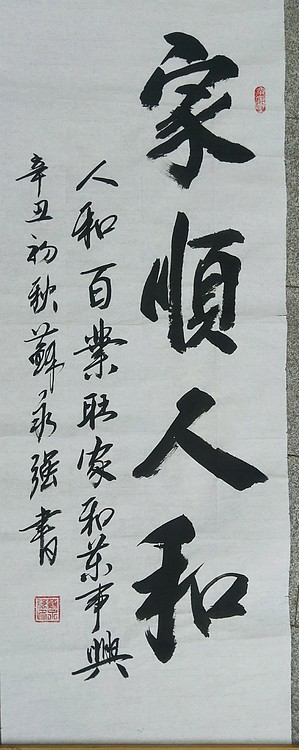 家順人和
人和百業旺家和萬事興
辛丑初秋蘇永强書